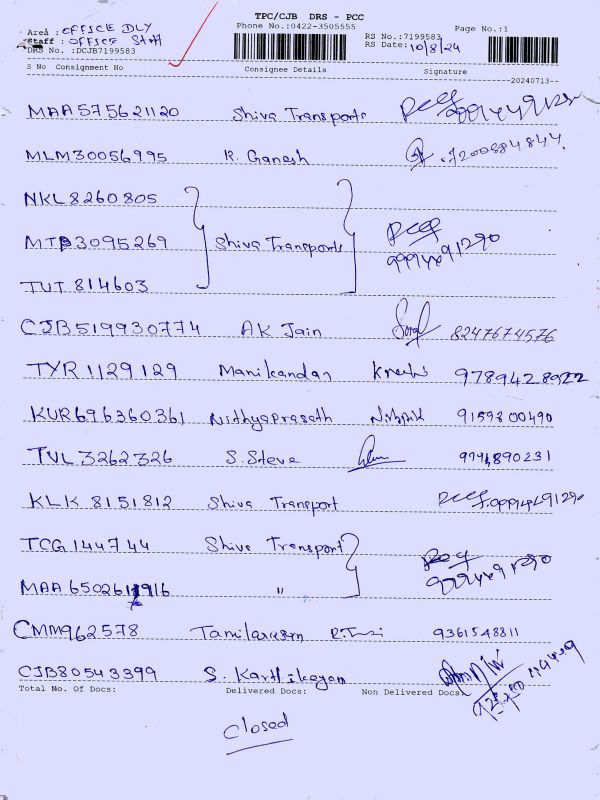 TPC/CJB DRS - PCC
Area : OFFICE DLY Phone No.:0422-3505555 Page No.:1
Staff : OFFICE Staff RS No.:7199583
DRS No. :DCJB7199583 RS Date: 10/8/24
S No Consignment No Consignee Details Signature
--20240713--
MAA575621120 Shiva Transports
MLM30056995 R. Ganesh 7200884844.
NKL8260805
MTP3095269 Shiva Transports 9994491290
TUT 814603
CJB519930774 AK Jain 8247674576
TYR1129129 Manikandan 9789428922
KUR696360361 Nithyaprasath 9159800490
TVL3262326 S. Steve 9944890231
KLK 8151812 Shiva Transport
TCG144744 Shiva Transport
MAA 6502611916 "
CMM962578 Tamilarasan 9361548811
CJB80543399 S. Karthikeyan
Total No. Of Docs: Delivered Docs: Non Delivered Docs:
Closed